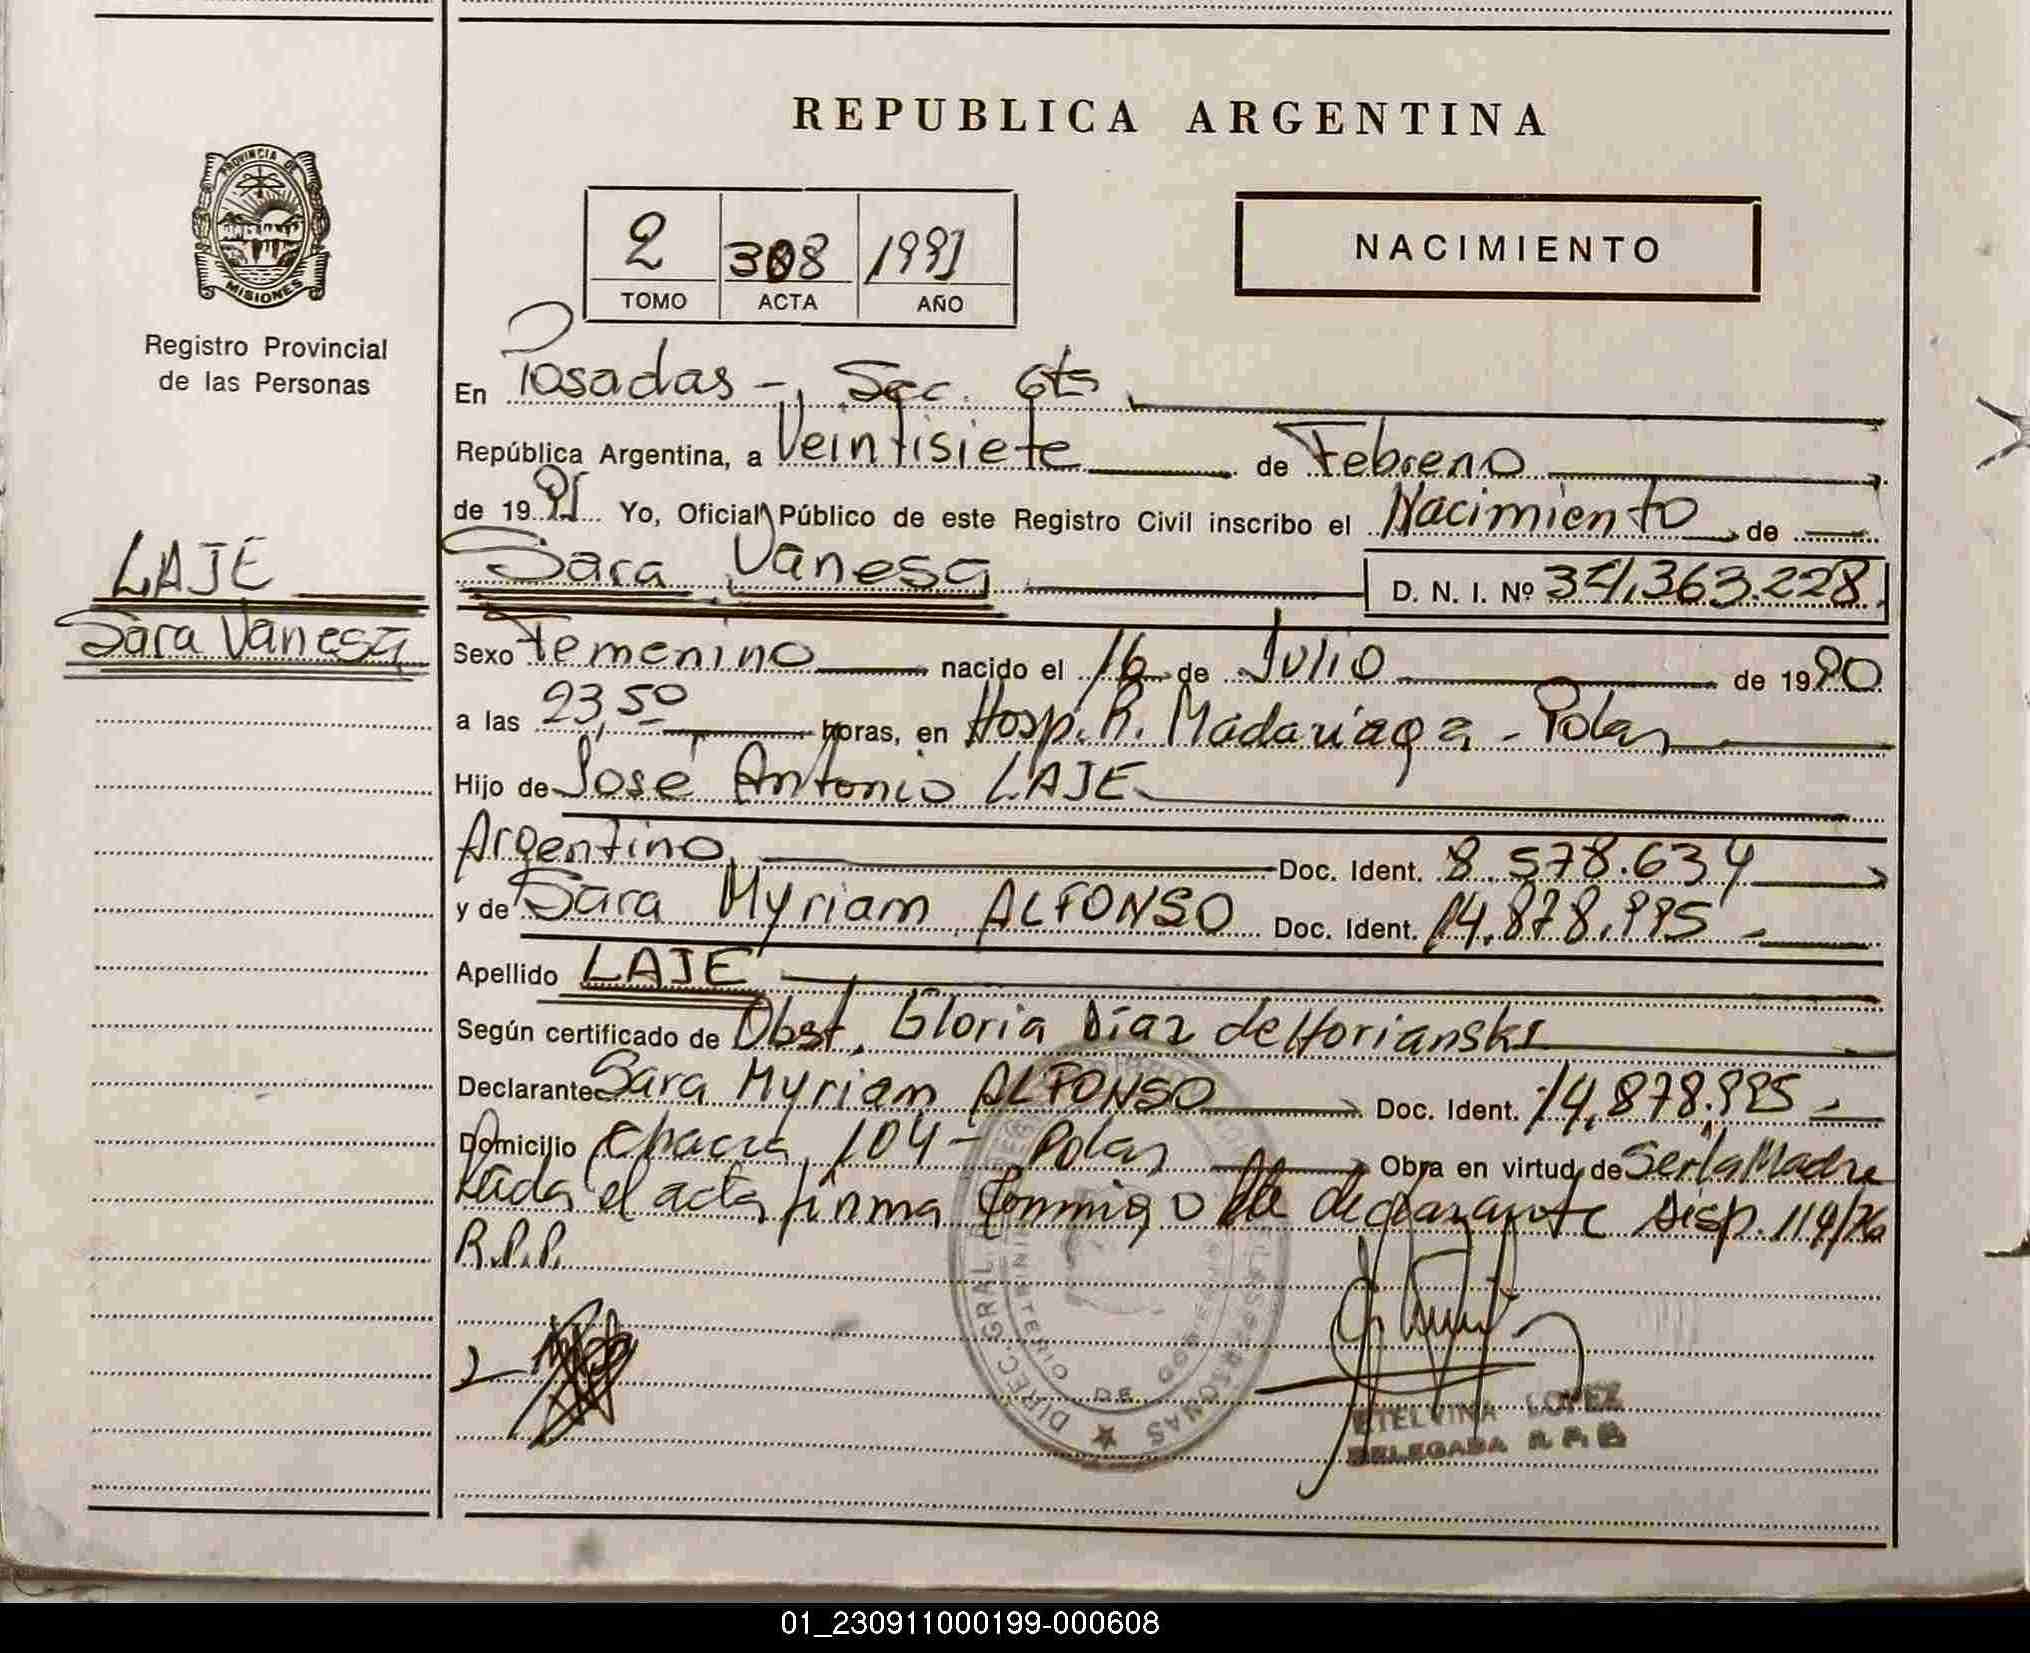 REPUBLICA ARGENTINA
PROVINCIA DE
MISIONES
Registro Provincial
de las Personas
2 308 1991
TOMO ACTA AÑO
NACIMIENTO
En Posadas -, Sec. 6ta
República Argentina, a Veintisiete de Febrero
de 1991 Yo, Oficial Público de este Registro Civil inscribo el Nacimiento de
LAJE
Sara Vanesa D. N. I. Nº 34,363.228
Sara Vanesa
Sexo Femenino nacido el 16 de Julio de 1990
a las 23,50 horas, en Hosp. R. Madariaga - Pdas
Hijo de José Antonio LAJE
Argentino Doc. Ident. 8.578.634
y de Sara Myriam ALFONSO Doc. Ident. 14.878.995 -
Apellido LAJE
Según certificado de Obst. Gloria Díaz de Horianski
Declarante Sara Myriam ALFONSO Doc. Ident. 14.878.995 -
Domicilio Chacra 104 - Pdas Obra en virtud de Ser la Madre
Leída el acta firma conmigo la declarante Disp. 114/76
R.P.P.
DIREC. GRAL. PERSONAS
MINISTERIO DE GOBIERNO
ETELVINA LOPEZ
DELEGADA R. P. P.
01_230911000199-000608